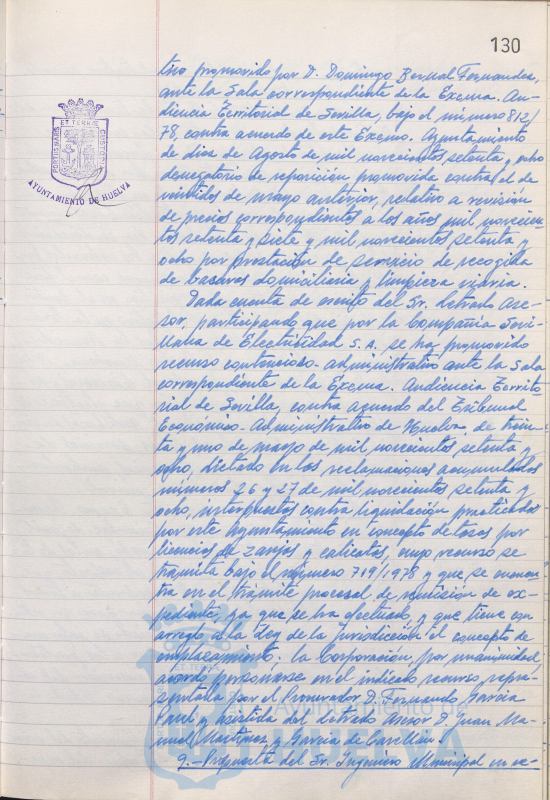 130
PORTUS MARIS ET TERRAE CUSTODIA
AYUNTAMIENTO DE HUELVA
tivo promovido por D. Domingo Bernal Fernandez,
ante la Sala correspondiente de la Excma. Au-
diencia Territorial de Sevilla, bajo el número 812/
78, contra acuerdo de este Excmo. Ayuntamiento
de diez de Agosto de mil novecientos setenta y ocho
denegatorio de reposición promovida contra el de
veintidos de mayo anterior, relativo a revisión
de precios correspondientes a los años mil novecien-
tos setenta y siete y mil novecientos setenta y
ocho por prestación de servicio de recogida
de basuras domiciliaria y limpieza viaria.
Dada cuenta de escrito del Sr. Letrado Ase-
sor, participando que por la Compañía Sevi-
llana de Electricidad S.A. se ha promovido
recurso contencioso-administrativo ante la Sala
correspondiente de la Excma. Audiencia Territo-
rial de Sevilla, contra acuerdo del Tribunal
Económico-Administrativo de Huelva, de trein-
ta y uno de mayo de mil novecientos setenta y
ocho, dictado en las reclamaciones acumuladas
números 26 y 27 de mil novecientos setenta y
ocho, interpuestas contra liquidación practicadas
por este Ayuntamiento en concepto de tasas por
licencias de zanjas y calicatas, cuyo recurso se
tramita bajo el número 719/1978 y que se encuen-
tra en el trámite procesal de remisión de ex-
pediente, ya que se ha efectuado, y que tiene con
arreglo a la Ley de la Jurisdicción el concepto de
emplazamiento. la Corporación, por unanimidad,
acordó personarse en el indicado recurso repre-
sentada por el Procurador D. Fernando García
Paul y asistida del Letrado Asesor D. Juan Ma-
nuel Martinez y Garcia de
9.- Propuesta del Sr. Ingeniero Municipal en re-
Ayuntamiento de
HUELVA